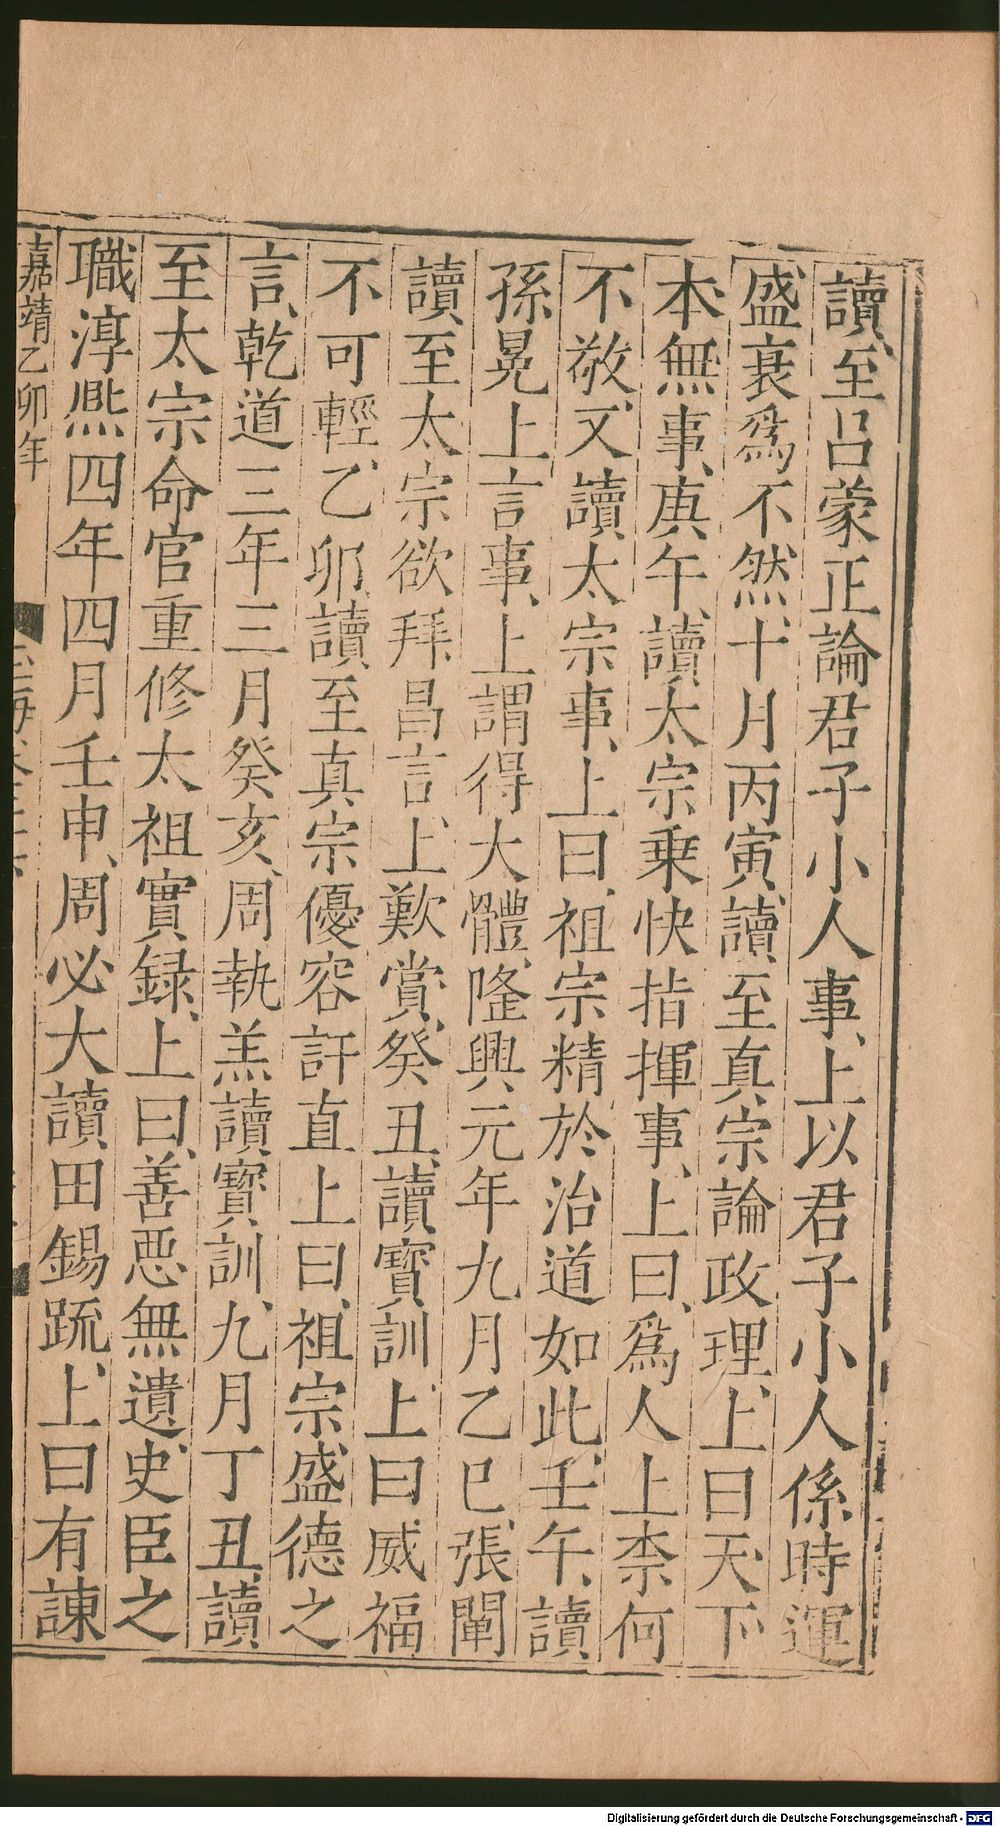 讀、至呂蒙正論君子小人事、上以君子小人係時運
盛衰爲不然、十月丙寅、讀至真宗論政理、上曰天下
本無事、庚午、讀太宗乗快指揮事、上曰、爲人上柰何
不敬、又讀太宗事、上曰、祖宗精於治道如此、壬午、讀
孫晃上言事、上謂得大體、隆興元年九月乙巳、張闡
讀、至太宗欲拜昌言、上歎賞、癸丑、讀寶訓上曰、威福
不可輕、乙卯、讀至真宗優容訐直上曰、祖宗盛德之
言、乾道三年三月癸亥、周執羔讀寶訓、九月丁丑、讀
至太宗命官重修太祖實録、上曰、善惡無遺、史臣之
職淳熈四年四月壬申、周必大讀田錫䟽、上曰有諫
嘉靖乙卯年
Digitalisierung gefördert durch die Deutsche Forschungsgemeinschaft - DFG